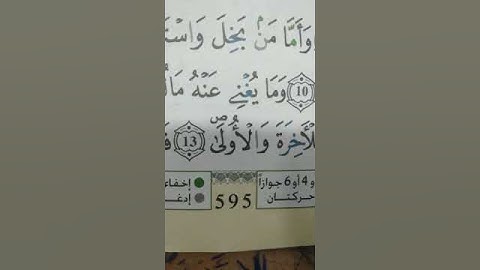 وَأَمَّا مَنۢ بَخِلَ وَاسْتَ
10 وَمَا يُغْنِي عَنْهُ مَا
لْأَخِرَةَ وَالْأُولَىٰ 13 فَ
و 4 أو 6 جوازاً
حركتان
595
إخفاء
إدغـ